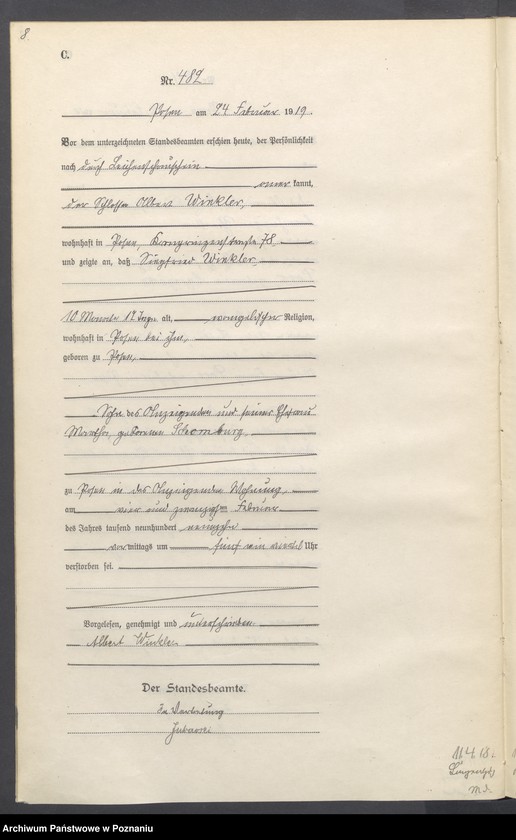 8.
C.
Nr. 482
Posen am 24 Februar 1919.
Vor dem unterzeichneten Standesbeamten erschien heute, der Persönlichkeit
nach durch Leichenschauschein
kannt,
der Schlosser Albert Winkler,
wohnhaft in Posen, Kronprinzenstraße 78
und zeigte an, daß Siegfried Winkler
10 Monate 17 Tage alt, evangelischer Religion,
wohnhaft in Posen bei ihm,
geboren zu Posen,
Sohn des Anzeigenden und seiner Ehefrau
Martha, geborenen Schomburg
zu Posen in des Anzeigenden Wohnung
am vier und zwanzigsten Februar
des Jahres tausend neunhundert neunzehn
vormittags um fünf ein Uhr
verstorben sei.
Vorgelesen, genehmigt und unterschrieben
Albert Winkler
Der Standesbeamte.
In Vertretung
11.4.18.
Archiwum Państwowe w Poznaniu